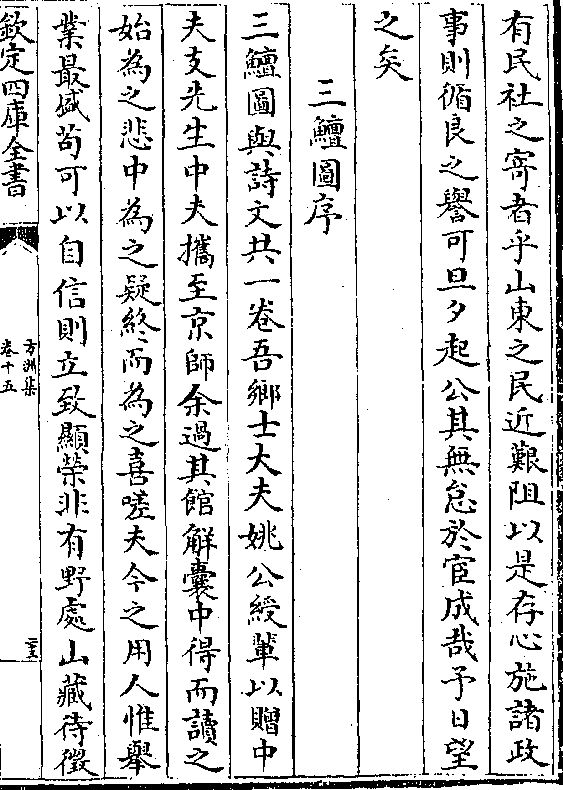 有民社之寄者乎山東之民近艱阻以是存心施諸政
事則循良之譽可旦夕起公其無怠於宦成哉予日望
之矣
三鱣圖序
三鱣圖與詩文共一卷吾鄉士大夫姚公綬輩以贈中
夫支先生中夫攜至京師余過其館解囊中得而讀之
始為之悲中為之疑終而為之喜嗟夫今之用人惟舉
業最盛茍可以自信則立致顯榮非有野處山藏待徵
欽定四庫全書
方洲集
卷十五
二十五